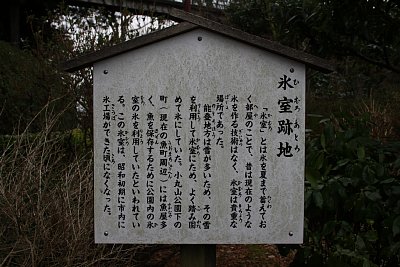 氷室跡地
「氷室」とは氷を夏まで蓄えてお
く部屋のことで、昔は現在のような
氷を作る技術はなく、氷室は貴重な
場所であった。
能登地方は雪が多いため、その雪
を利用して氷室にため、よく踏み固
めて氷にしていた。小丸山公園下の
町(現在の魚町周辺)には魚屋多
く、魚を保存するために公園内の氷
室の氷を利用していたといわれてい
る。この氷室は、昭和初期に市内に
氷工場ができた頃になくなった。